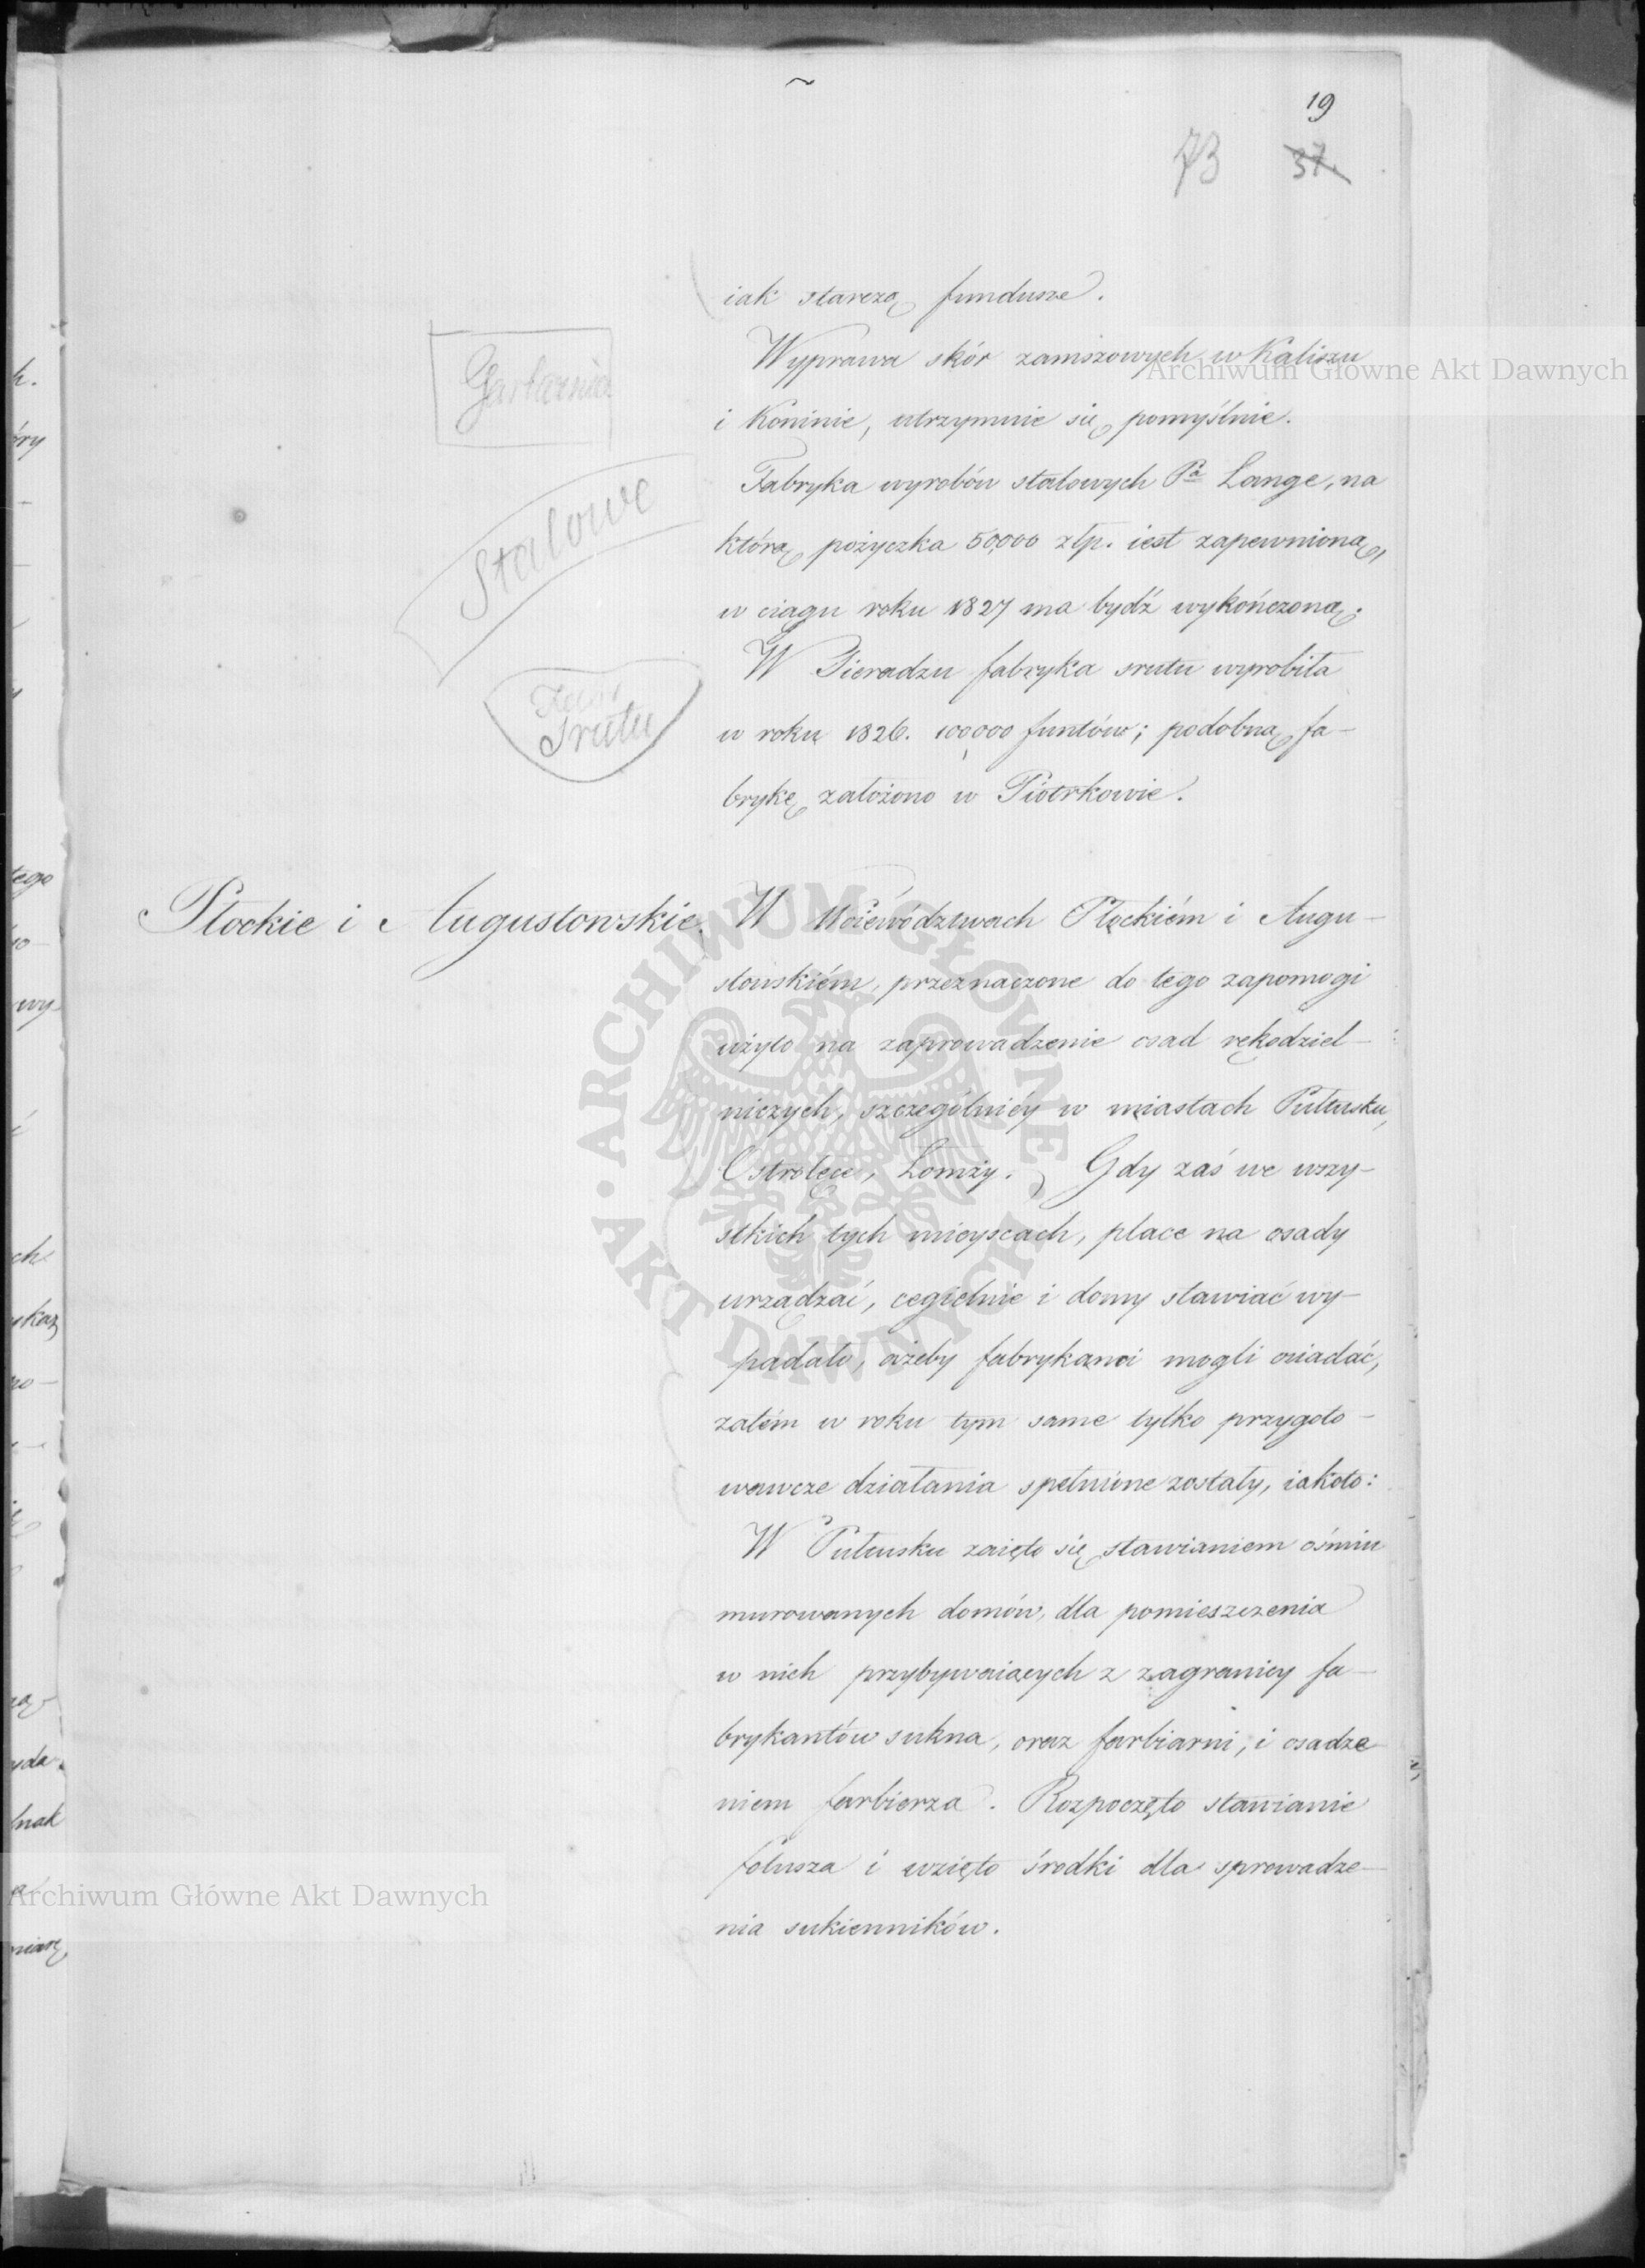 19
73 37.
iak starczą fundusze.
Garbarnia
Wyprawa skór zamszowych w Kaliszu
i Koninie, utrzymuie się pomyślnie.
Stalowe
Fabryka wyrobów stalowych Pa Lange, na
którą pożyczka 50,000 złp. iest zapewnioną,
w ciągu roku 1827 ma bydź wykończoną.
Śrutu
W Sieradzu fabryka srutu wyrobiła
w roku 1826. 100,000 funtów; podobną fa-
brykę założono w Piotrkowie.
Płockie i Augustowskie.
W Woiewództwach Płockiém i Augu-
stowskiém, przeznaczone do tego zapomogi
użyto na zaprowadzenie osad rękodziel-
niczych, szczególniéy w miastach Pułtusku,
Ostrołęce, Łomży. Gdy zaś we wszy-
stkich tych mieyscach, place na osady
urządzać, cegielnie i domy stawiać wy-
padało, ażeby fabrykanci mogli osiadać,
zatém w roku tym same tylko przygoto-
wawcze działania spełnione zostały, iakoto:
W Pułtusku zaięto się stawianiem ośmiu
murowanych domów, dla pomieszczenia
w nich przybywaiących z zagranicy fa-
brykantów sukna, oraz farbiarni, i osadze-
niem farbierza. Rozpoczęto stawianie
folusza i wzięto środki dla sprowadze-
nia sukienników.
Archiwum Główne Akt Dawnych
ARCHIWUM GŁÓWNE AKT DAWNYCH
Archiwum Główne Akt Dawnych